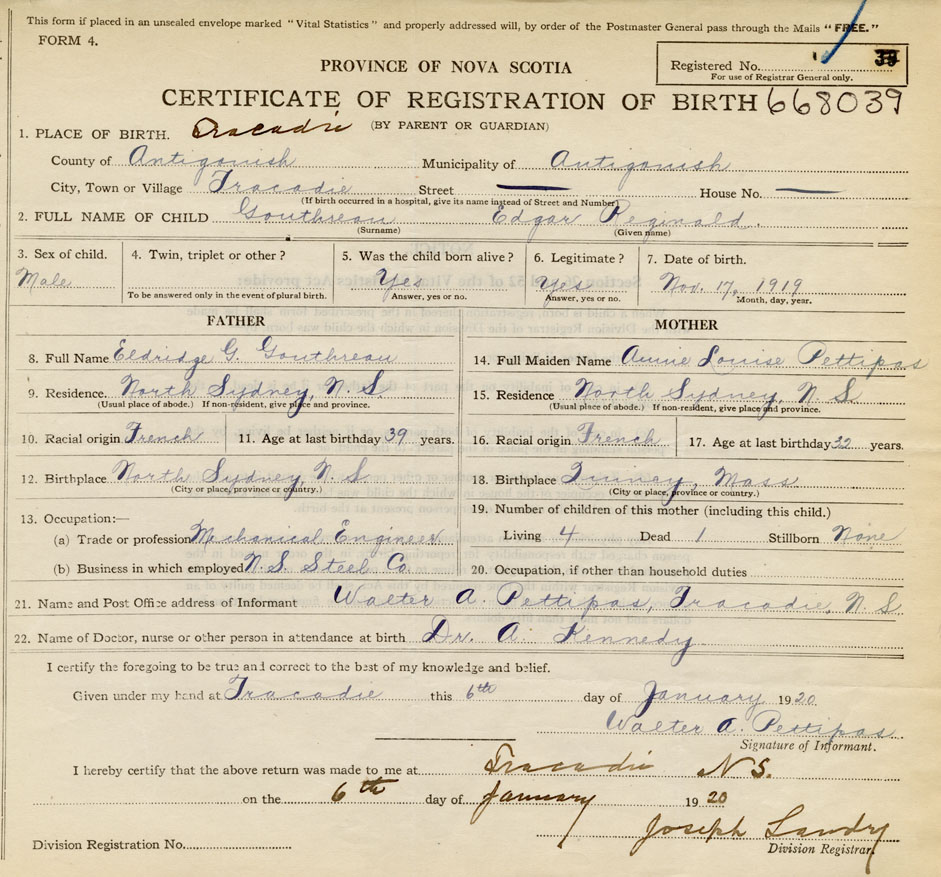 This form if placed in an unsealed envelope marked "Vital Statistics" and properly addressed will, by order of the Postmaster General pass through the Mails "FREE."
FORM 4.
Registered No. 39
For use of Registrar General only.
PROVINCE OF NOVA SCOTIA
CERTIFICATE OF REGISTRATION OF BIRTH 668039
(BY PARENT OR GUARDIAN)
1. PLACE OF BIRTH. Tracadie
County of Antigonish Municipality of Antigonish
City, Town or Village Tracadie Street — House No. —
(If birth occurred in a hospital, give its name instead of Street and Number)
2. FULL NAME OF CHILD Gouthreau Edgar Reginald
(Surname) (Given name)
3. Sex of child. 4. Twin, triplet or other? 5. Was the child born alive? 6. Legitimate? 7. Date of birth.
Male Yes Yes Nov. 17, 1919
To be answered only in the event of plural birth. Answer, yes or no. Answer, yes or no. Month, day, year.
FATHER MOTHER
8. Full Name Eldridge G. Gouthreau 14. Full Maiden Name Annie Louise Pettipas
9. Residence. North Sydney, N. S. 15. Residence North Sydney, N. S
(Usual place of abode.) If non-resident, give place and province. (Usual place of abode.) If non-resident, give place and province.
10. Racial origin French 11. Age at last birthday 39 years. 16. Racial origin French 17. Age at last birthday 32 years.
12. Birthplace North Sydney, N. S 18. Birthplace Quincy, Mass
(City or place, province or country.) (City or place, province or country.)
13. Occupation:— 19. Number of children of this mother (including this child.)
(a) Trade or profession Mechanical Engineer Living 4 Dead 1 Stillborn None
(b) Business in which employed N. S. Steel Co. 20. Occupation, if other than household duties
21. Name and Post Office address of Informant Walter A. Pettipas, Tracadie, N. S
22. Name of Doctor, nurse or other person in attendance at birth Dr. A. Kennedy
I certify the foregoing to be true and correct to the best of my knowledge and belief.
Given under my hand at Tracadie this 6th day of January 1920
Walter A. Pettipas
Signature of Informant.
I hereby certify that the above return was made to me at Tracadie N S.
on the 6th day of January 1920
Joseph Landry
Division Registration No. Division Registrar.